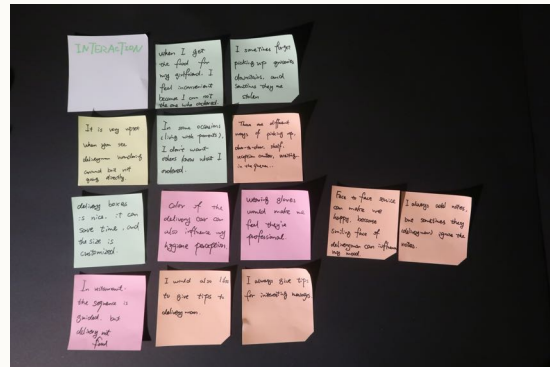 INTERACTION
when I got
the food for
my girlfriend. I
feel inconvenient
because I am not
the one who ordered.
I sometimes forget
picking up groceries
downstairs, and
sometimes they are
stolen
It is very upset
when you see
deliveryman wandering
around but not
going directly.
In some occasions
(living with parents),
I don't want
others know what I
ordered.
There are different
ways of picking up,
door-to-door, shelf,
reception counter, meeting
in the
delivery boxes
is nice. it can
save time, and
the size is
customized.
Color of the
delivery car can
also influence my
hygiene perception.
Wearing gloves
would make me
feel they're
professional.
Face to face service
can make me
happy, because
smiling face of
deliveryman can influence
my mood
I always add notes,
but sometimes they
(deliveryman) ignore the
notes.
In restaurant,
the sequence is
guided, but
delivery not
food
I would also like
to give tips to
delivery men
I always give tips
for interesting messages.